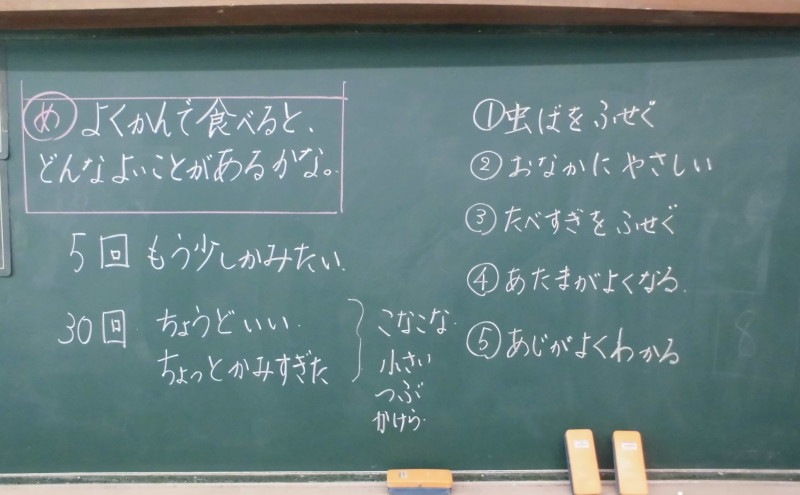 め よくかんで食べると、
どんなよいことがあるかな。
5回 もう少しかみたい.
30回 ちょうどいい.
ちょっとかみすぎた
こなこな.
小さい
つぶ
かけら.
①虫ばをふせぐ
②おなかにやさしい
③たべすぎをふせぐ
④あたまがよくなる.
⑤あじがよくわかる